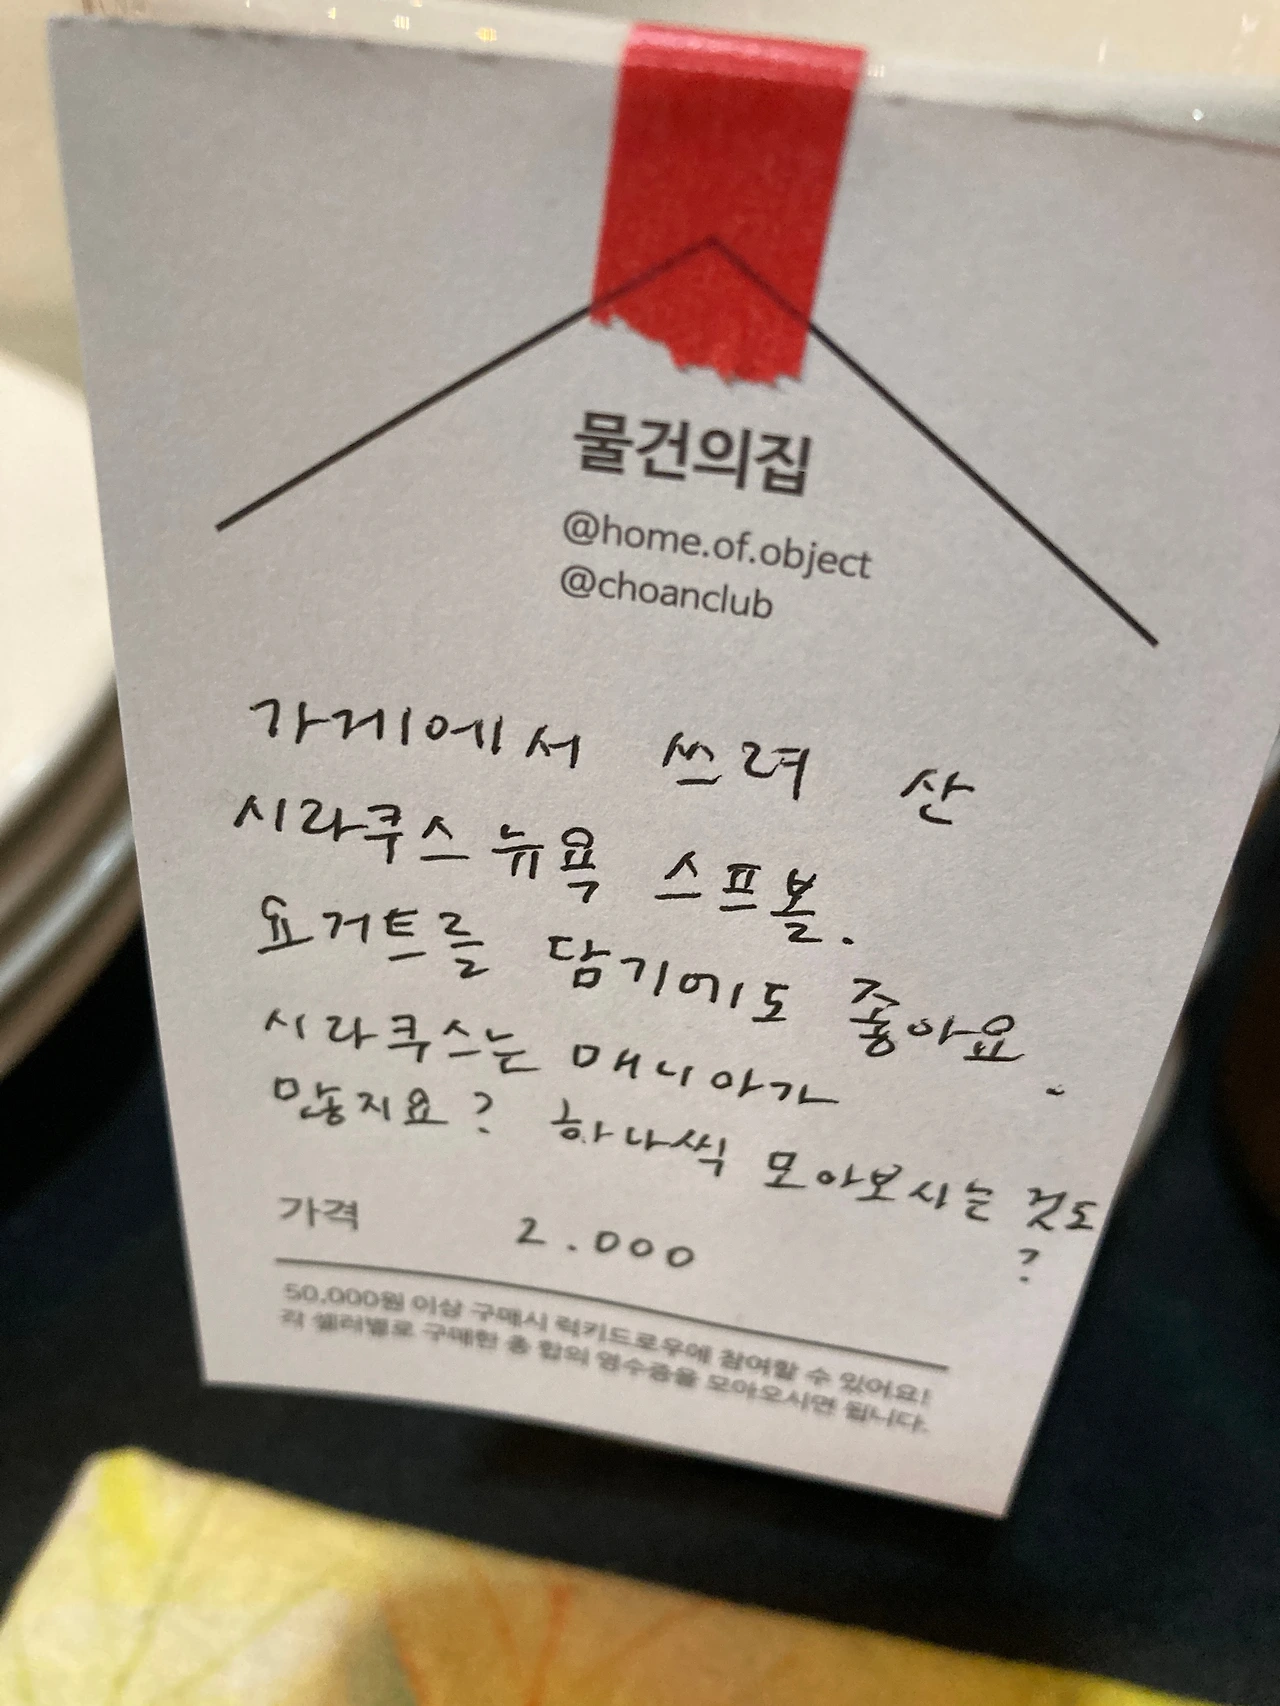 물건의집
@home.of.object
@choanclub
가게에서 쓰려 산
시라쿠스 뉴욕 스프볼.
요거트를 담기에도 좋아요.
시라쿠스는 매니아가
많지요? 하나씩 모아보시는 것도
?
가격 2.000
50,000원 이상 구매시 럭키드로우에 참여할 수 있어요!
각 셀러별로 구매한 총 합의 영수증을 모아오시면 됩니다.